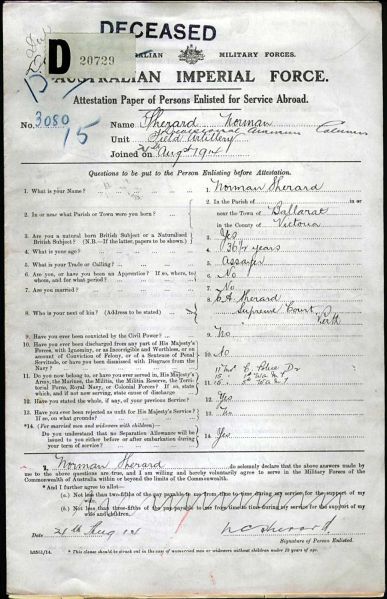 DECEASED
D 20729
AUSTRALIAN MILITARY FORCES.
AUSTRALIAN IMPERIAL FORCE.
Attestation Paper of Persons Enlisted for Service Abroad.
No. 3080 Name Sherard Norman
15 Ammunition Column
Unit Field Artillery
Joined on Augst 1914
Questions to be put to the Person Enlisting before Attestation.
1. What is your Name? ... 1. Norman Sherard
2. In or near what Parish or Town were you born? ... 2. In the Parish of in or
near the Town of Ballarat
in the County of Victoria
3. Are you a natural born British Subject or a Naturalised
British Subject? (N.B.—If the latter, papers to be shown.) 3. Yes
4. What is your age? ... 4. years
5. What is your Trade or Calling? ... 5. Assayer
6. Are you, or have you been an Apprentice? If so, where, to
whom, and for what period? ... 6. No
7. Are you married? ... 7. No
8. Who is your next of kin? (Address to be stated) ... 8. Sherard
Supreme Court
Perth
9. Have you ever been convicted by the Civil Power? ... 9. No
10. Have you ever been discharged from any part of His Majesty's
Forces, with Ignominy, or as Incorrigible and Worthless, or on
account of Conviction of Felony, or of a Sentence of Penal
Servitude, or have you been dismissed with Disgrace from the
Navy? ... 10. No
11. Do you now belong to, or have you ever served in, His Majesty's
Army, the Marines, the Militia, the Militia Reserve, the Terri-
torial Force, Royal Navy, or Colonial Forces? If so, state
which, and if not now serving, state cause of discharge 11.
12. Have you stated the whole, if any, of your previous Service? 12. Yes
13. Have you ever been rejected as unfit for His Majesty's Service?
If so, on what grounds? 13. No
*14. (For married men and widowers with children)
Do you understand that no Separation Allowance will be
issued to you either before or after embarkation during
your term of service? 14. Yes
I, Norman Sherard do solemnly declare that the above answers made by
me to the above questions are true, and I am willing and hereby voluntarily agree to serve in the Military Forces of the
Commonwealth of Australia within or beyond the limits of the Commonwealth.
*And I further agree to allot
(a.) Not less than two-fifths of the pay payable to me from time to time during my service for the support of my
(b.) Not less than three-fifths of the pay payable to me from time to time during my service for the support of my
wife and children.
Date Aug 14 Sherard
Signature of Person Enlisted.
* This clause should be struck out in the case of unmarried men or widowers without children under 18 years of age.